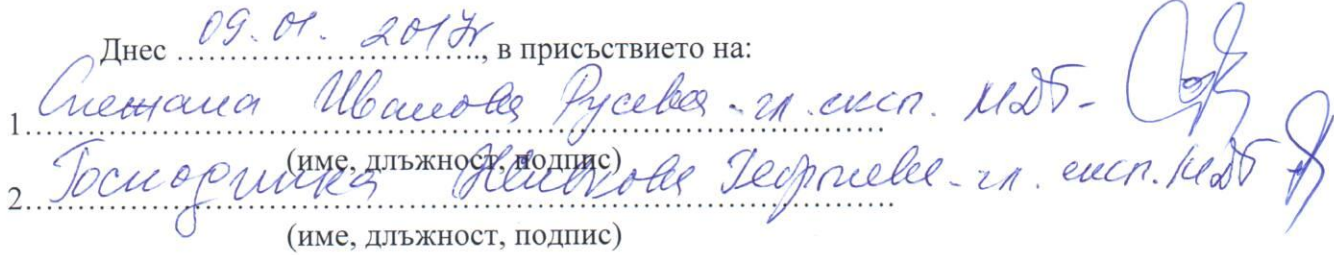 Днес 09.01.2017г, в присъствието на:
1 Снежана Иванова Русева - гл. експ. МДТ -
(име, длъжност, подпис)
2. Господинка Георгиева - гл. експ. МДТ
(име, длъжност, подпис)